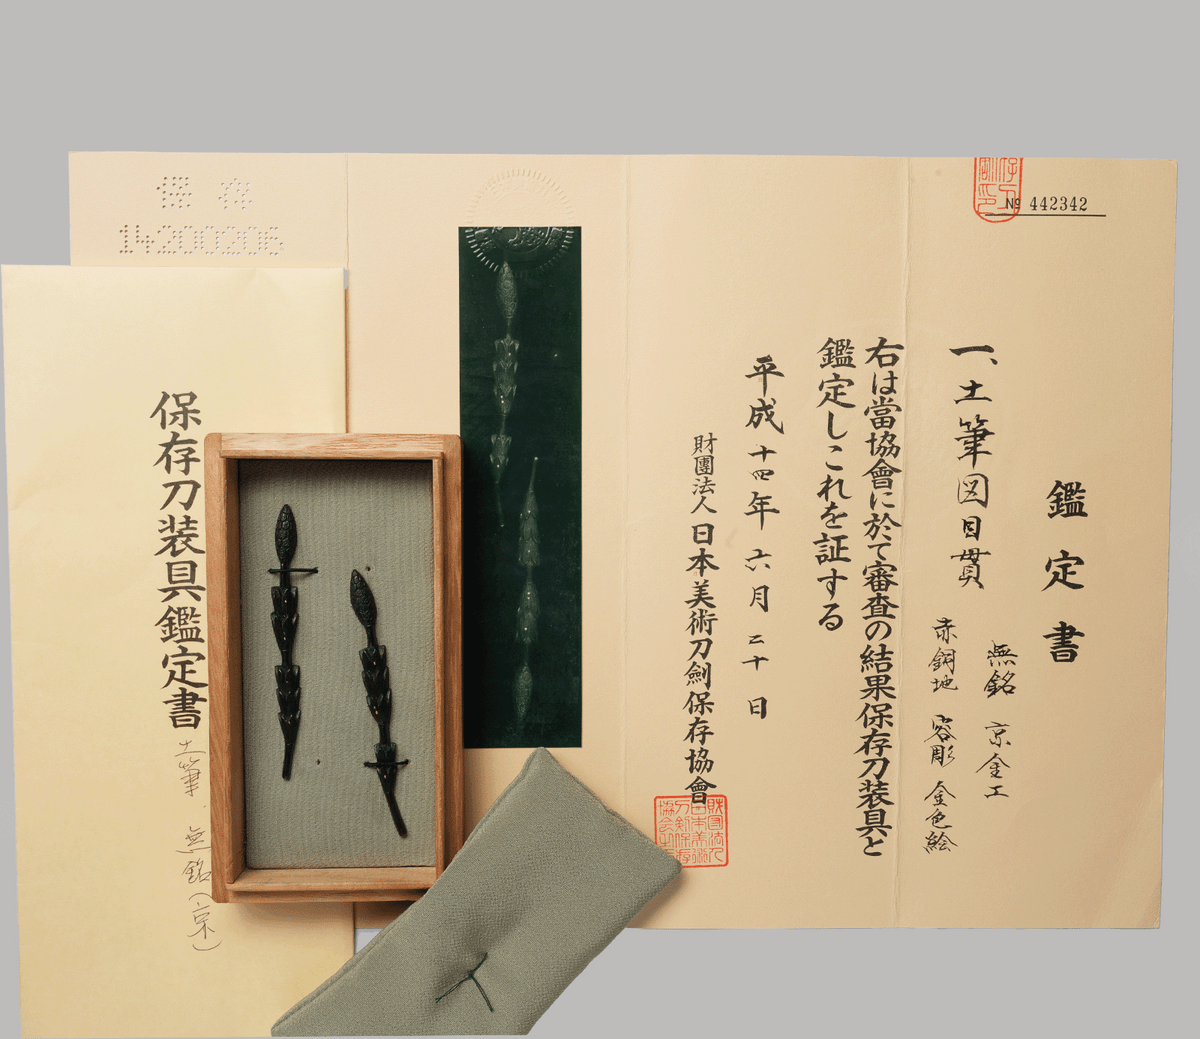 № 442342
鑑定書
一、土筆図目貫
無銘 京金工
赤銅地 容彫 金色絵
右は當協會に於て審査の結果保存刀装具と
鑑定しこれを証する
平成十四年六月二十日
財團法人 日本美術刀劍保存協會
保存
14200206
保存刀装具鑑定書
土筆、無銘(京)